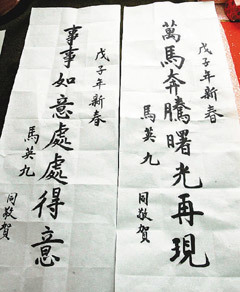 戊子年新春
萬馬奔騰曙光再現
馬英九
同敬賀
戊子年新春
事事如意處處得意
馬英九
同敬賀